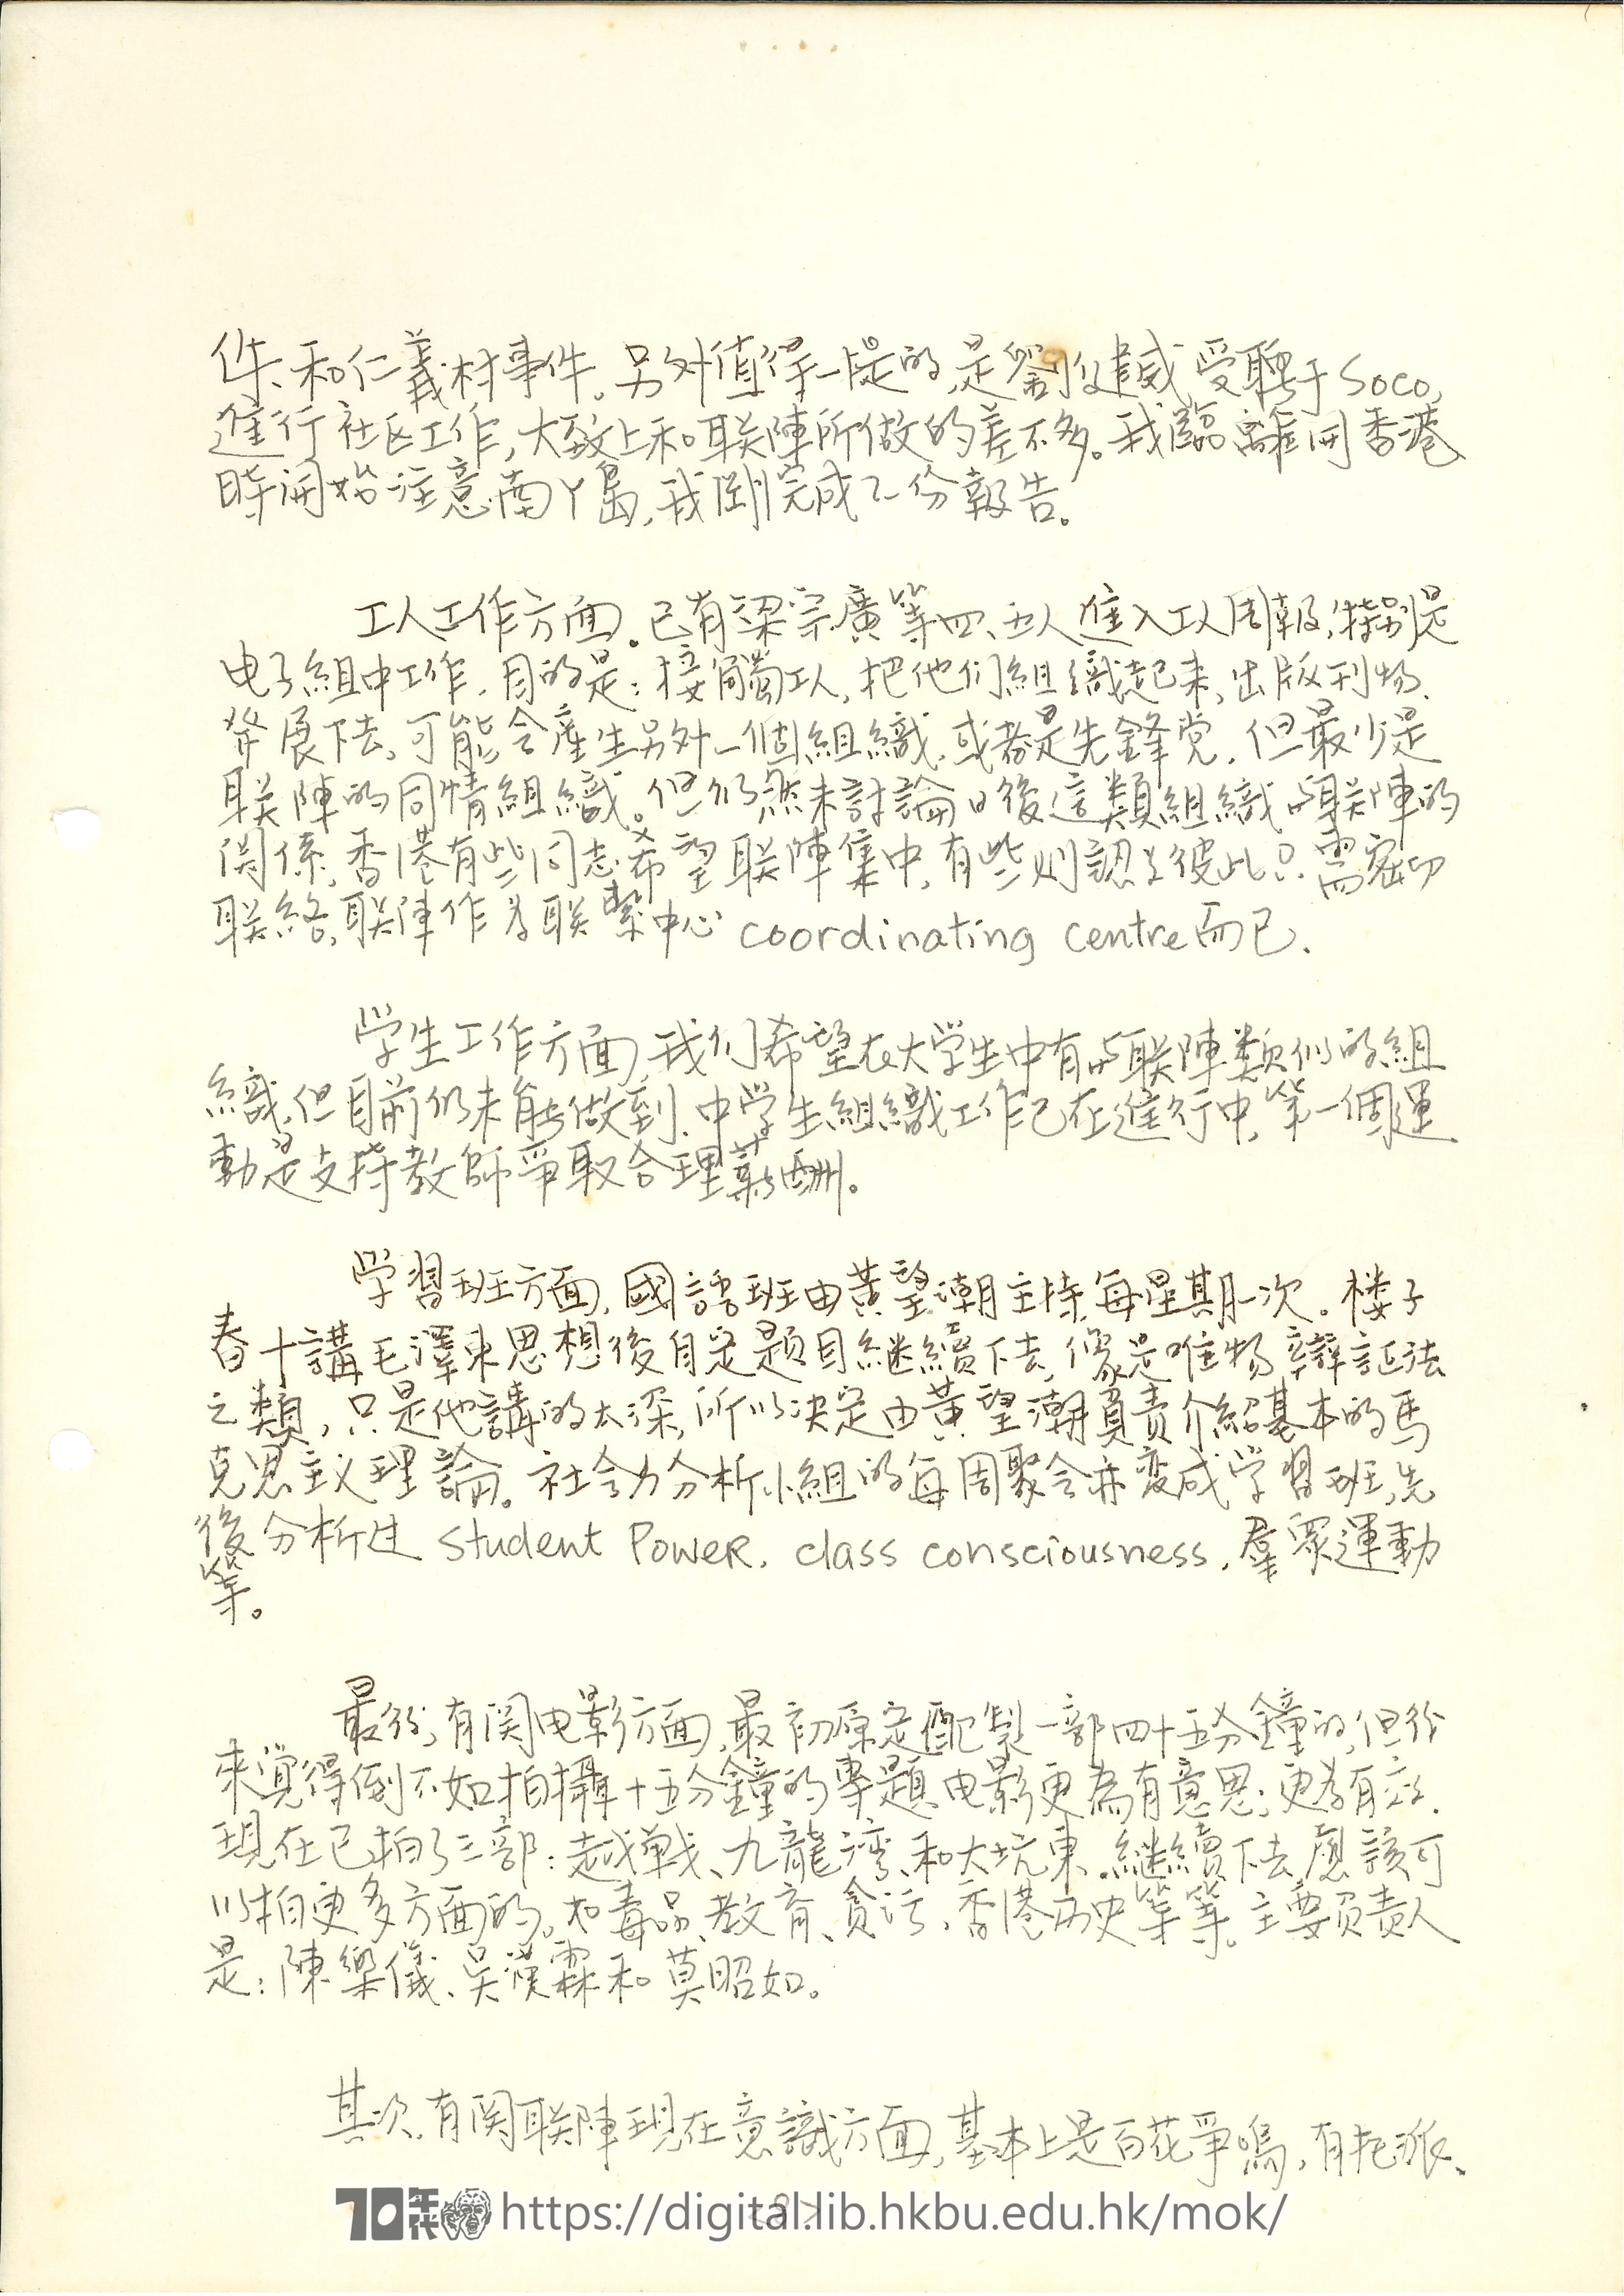 件、和仁義村事件。另外值得一提的,是劉健威受聘于SoCO,
進行社区工作,大致上和联陣所做的差不多。我臨離開香港
時開始注意南丫島,我剛完成了一份報告。
工人工作方面。已有梁宗廣等四、五人進入工人周報,特别是
电子組中工作,目的是:接觸工人,把他们組織起来,出版刊物.
發展下去,可能会產生另外一個組織,或者是先鋒党.但最少是
联陣的同情組織。但仍然未討論日後這類組織与联陣的
関係,香港有些同志希望联陣集中,有些则認為彼此只需密切
联絡,联陣作為联繫中心 coordinating centre而已.
学生工作方面,我们希望在大学生中有与联陣類似的組
織,但目前仍未能做到.中学生組織工作已在進行中,第一個運
動是支持教師爭取合理薪酬。
学習班方面,國語班由黃望潮主持,每星期一次。楼子
春十講毛澤東思想後自定題目继續下去,像是唯物辯証法
之類,只是他講的太深,所以决定由黃望潮負責介紹基本的馬
克思主义理論。社会力分析小組的每周聚会亦变成学習班,先
後分析过 Student Power, class consciousness,羣眾運動
等。
最后,有関电影方面,最初原定配製一部四十五分鐘的,但后
来覚得倒不如拍攝十五分鐘的專題电影更為有意思,更為有效.
現在已拍了三部:越戰、九龍湾、和大坑東.继續下去應該可
以拍更多方面的。如毒品、教育、貪污、香港历史等等。主要負責人
是:陳樂儀、吳漢霖和莫昭如。
其次,有関联陣現在意識方面,基本上是百花爭鳴,有托派、
70年代 https://digital.lib.hkbu.edu.hk/mok/